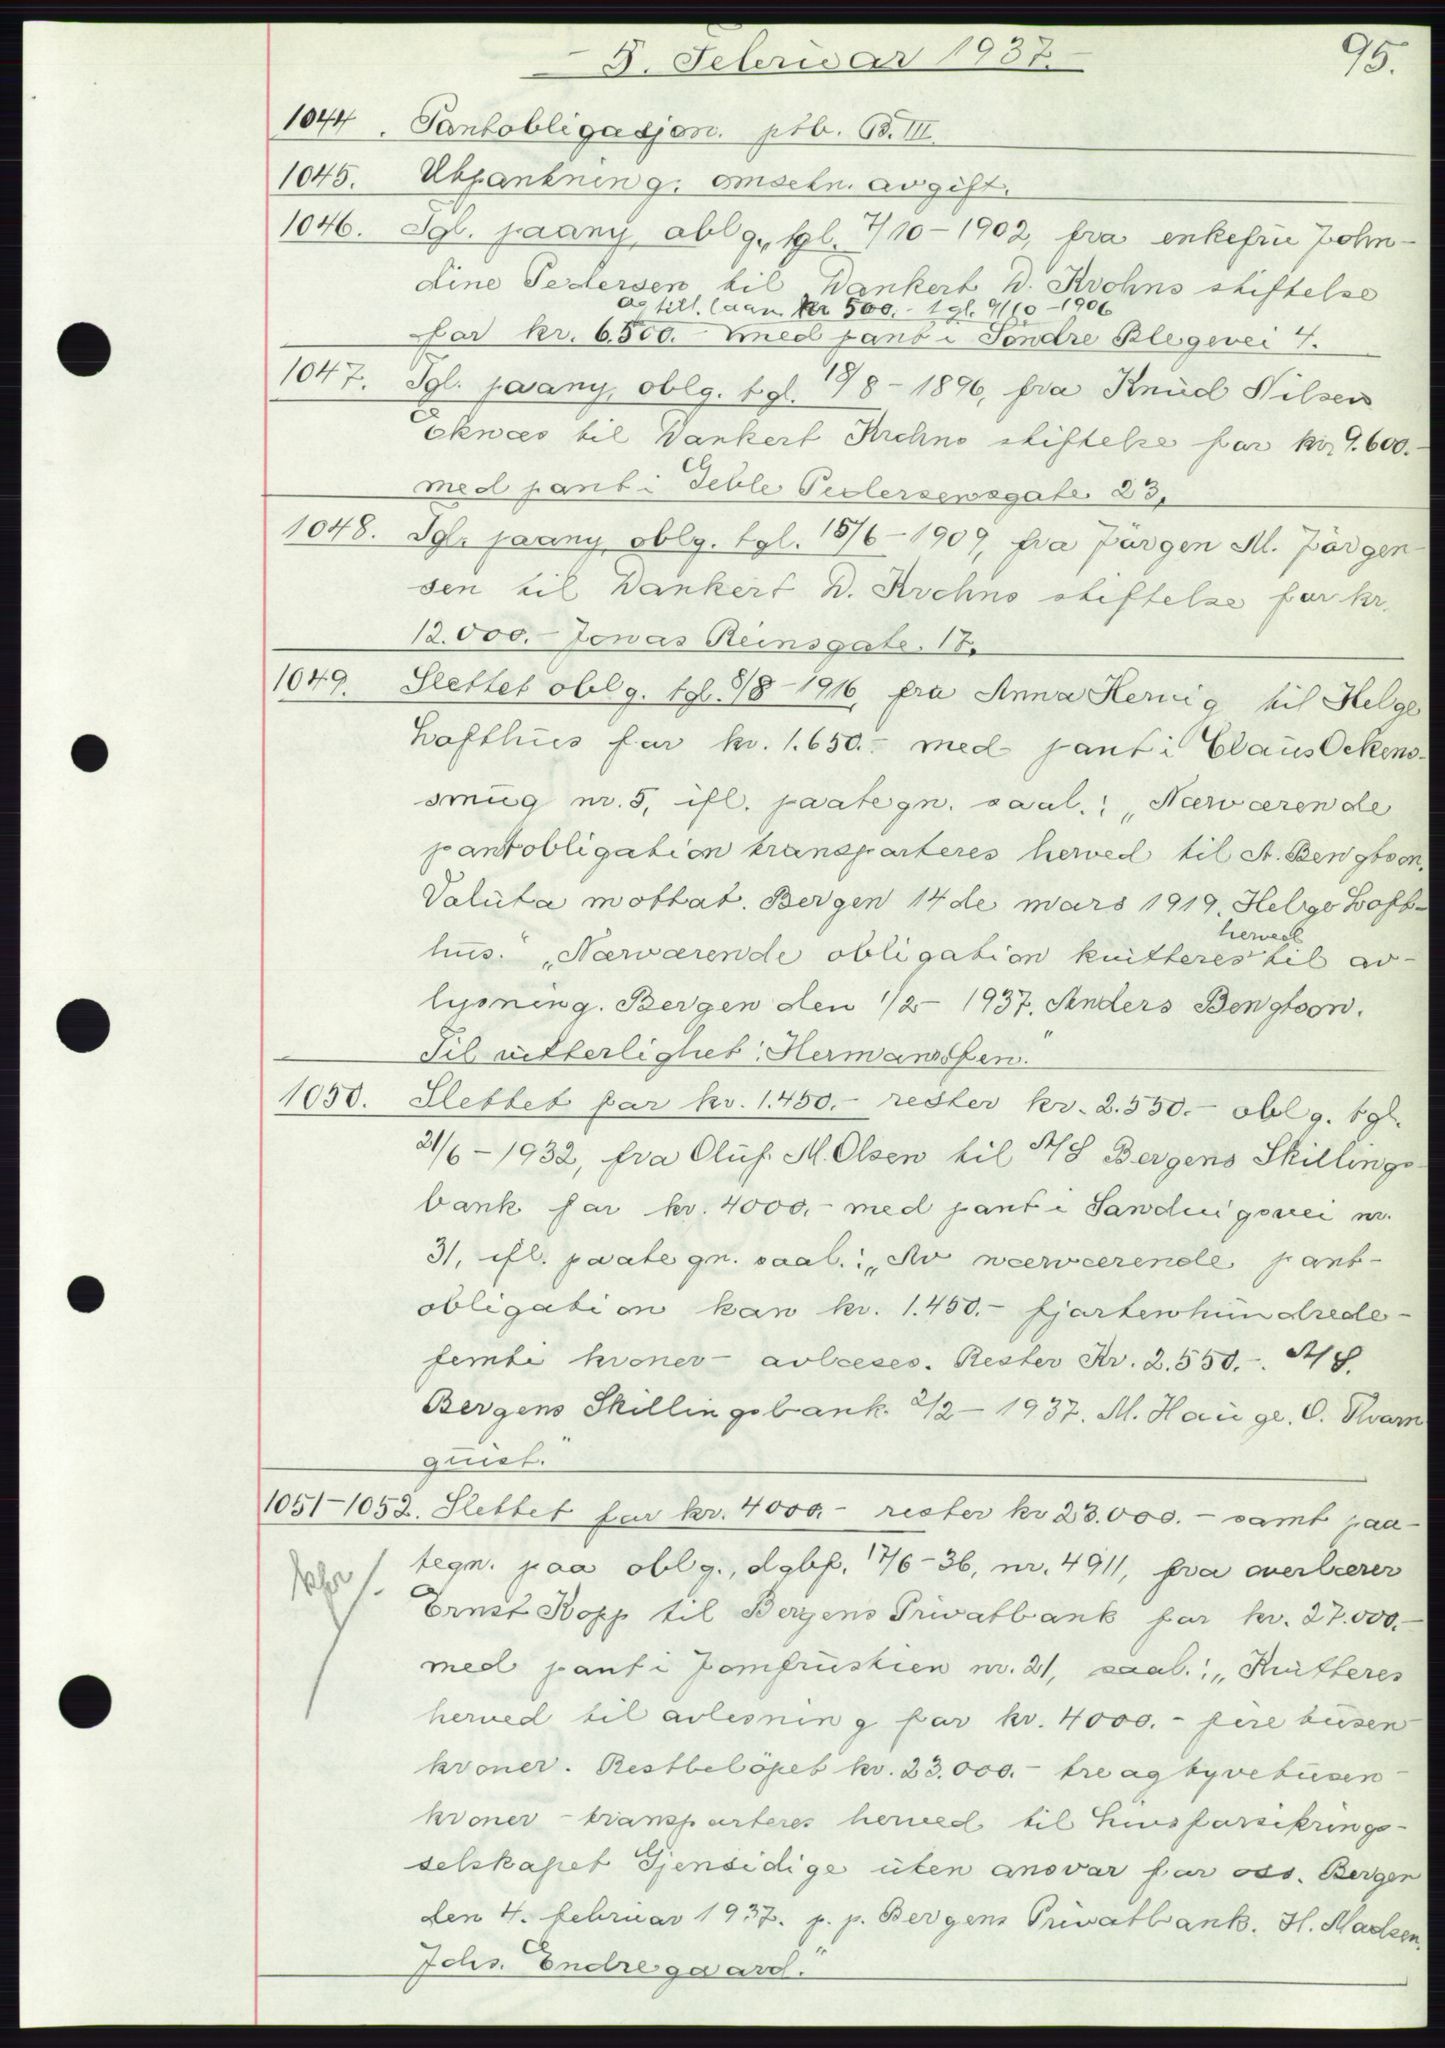 - 5. Februar 1937. -
95.
1044. Pantobligasjon. ptb. B. III.
1045. Utpantning: omsetn. avgift.
1046. Tgl. paany, oblg., tgl. 7/10-1902, fra enkefru John-
dine Pedersen til Dankert D. Krohns stiftelse
og till. laan kr 500.- tgl. 9/10-1906
for kr. 6.500.- med pant i Söndre Blegevei 4.
1047. Tgl. paany, oblg. tgl. 18/8-1896, fra Knud Nilsen
Eknæs til Dankert Krohns stiftelse for kr. 9.600.-
med pant i Geble Pedersensgate 23.
1048. Tgl. paany, oblg. tgl. 15/6-1909, fra Jörgen M. Jörgen-
sen til Dankert D. Krohns stiftelse for kr.
12.000.- Jonas Reinsgate. 17.
1049. Slettet oblg. tgl. 8/8-1916, fra Anna Hervig til Helge
Lofthus for kr. 1.650.- med pant i Claus Ockens-
smug nr. 5, ifl. paategn. saal.: „Nærværende
pantobligation transporteres herved til A. Bengtson.
Valuta mottat. Bergen 14de mars 1919. Helge Loft-
herved
hus." „Nærværende obligation kvitteres til av-
lysning. Bergen den 1/2-1937. Anders Bengtson.
Til vitterlighet: Hermansen."
1050. Slettet for kr. 1.450.- rester kr. 2.550.- oblg. tgl.
21/6-1932, fra Oluf M. Olsen til A/S Bergens Skillings-
bank for kr. 4000.- med pant i Sandvigsvei nr.
31, ifl. paategn. saal.: „Av nærværende pant-
obligation kan kr. 1.450.- fjortenhundrede-
femti kroner - avlæses. Rester Kr. 2.550.-. A/S.
Bergens Skillingsbank. 2/2-1937. M. Hauge. O. Kvarn
quist."
1051-1052. Slettet for kr. 4000.- rester kr 23.000.- samt paa-
tegn. paa oblg., dgbf. 17/6-36, nr. 4911, fra overlærer
Ernst Kopp til Bergens Privatbank for kr. 27.000.-
med pant i Jomfrustien nr. 21, saal.: „Kvitteres
herved til avlesning for kr. 4000.- fire tusen
kroner. Restbelöpet kr. 23.000.- treogtyvetusen
kroner - transporteres herved til Livsforsikrings-
selskapet Gjensidige uten ansvar for oss. Bergen
den 4. februar 1937. p. p. Bergens Privatbank. H. Madsen.
Johs. Endregaard."